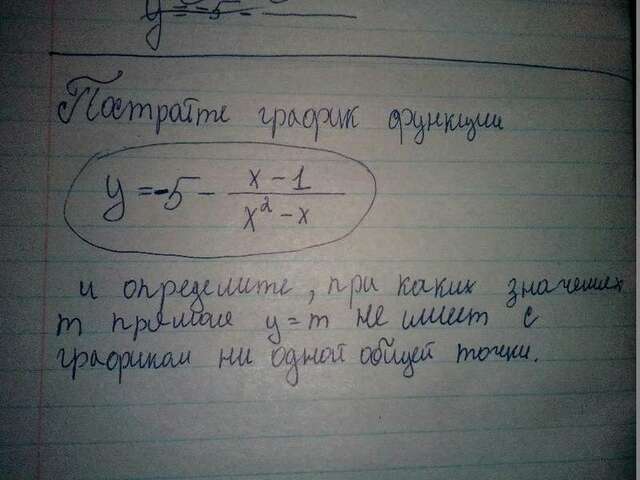 y = -5 -
Постройте график функции
y = -5 - \frac{x-1}{x^2-x}
и определите, при каких значениях
m прямая y=m не имеет с
графиком ни одной общей точки.